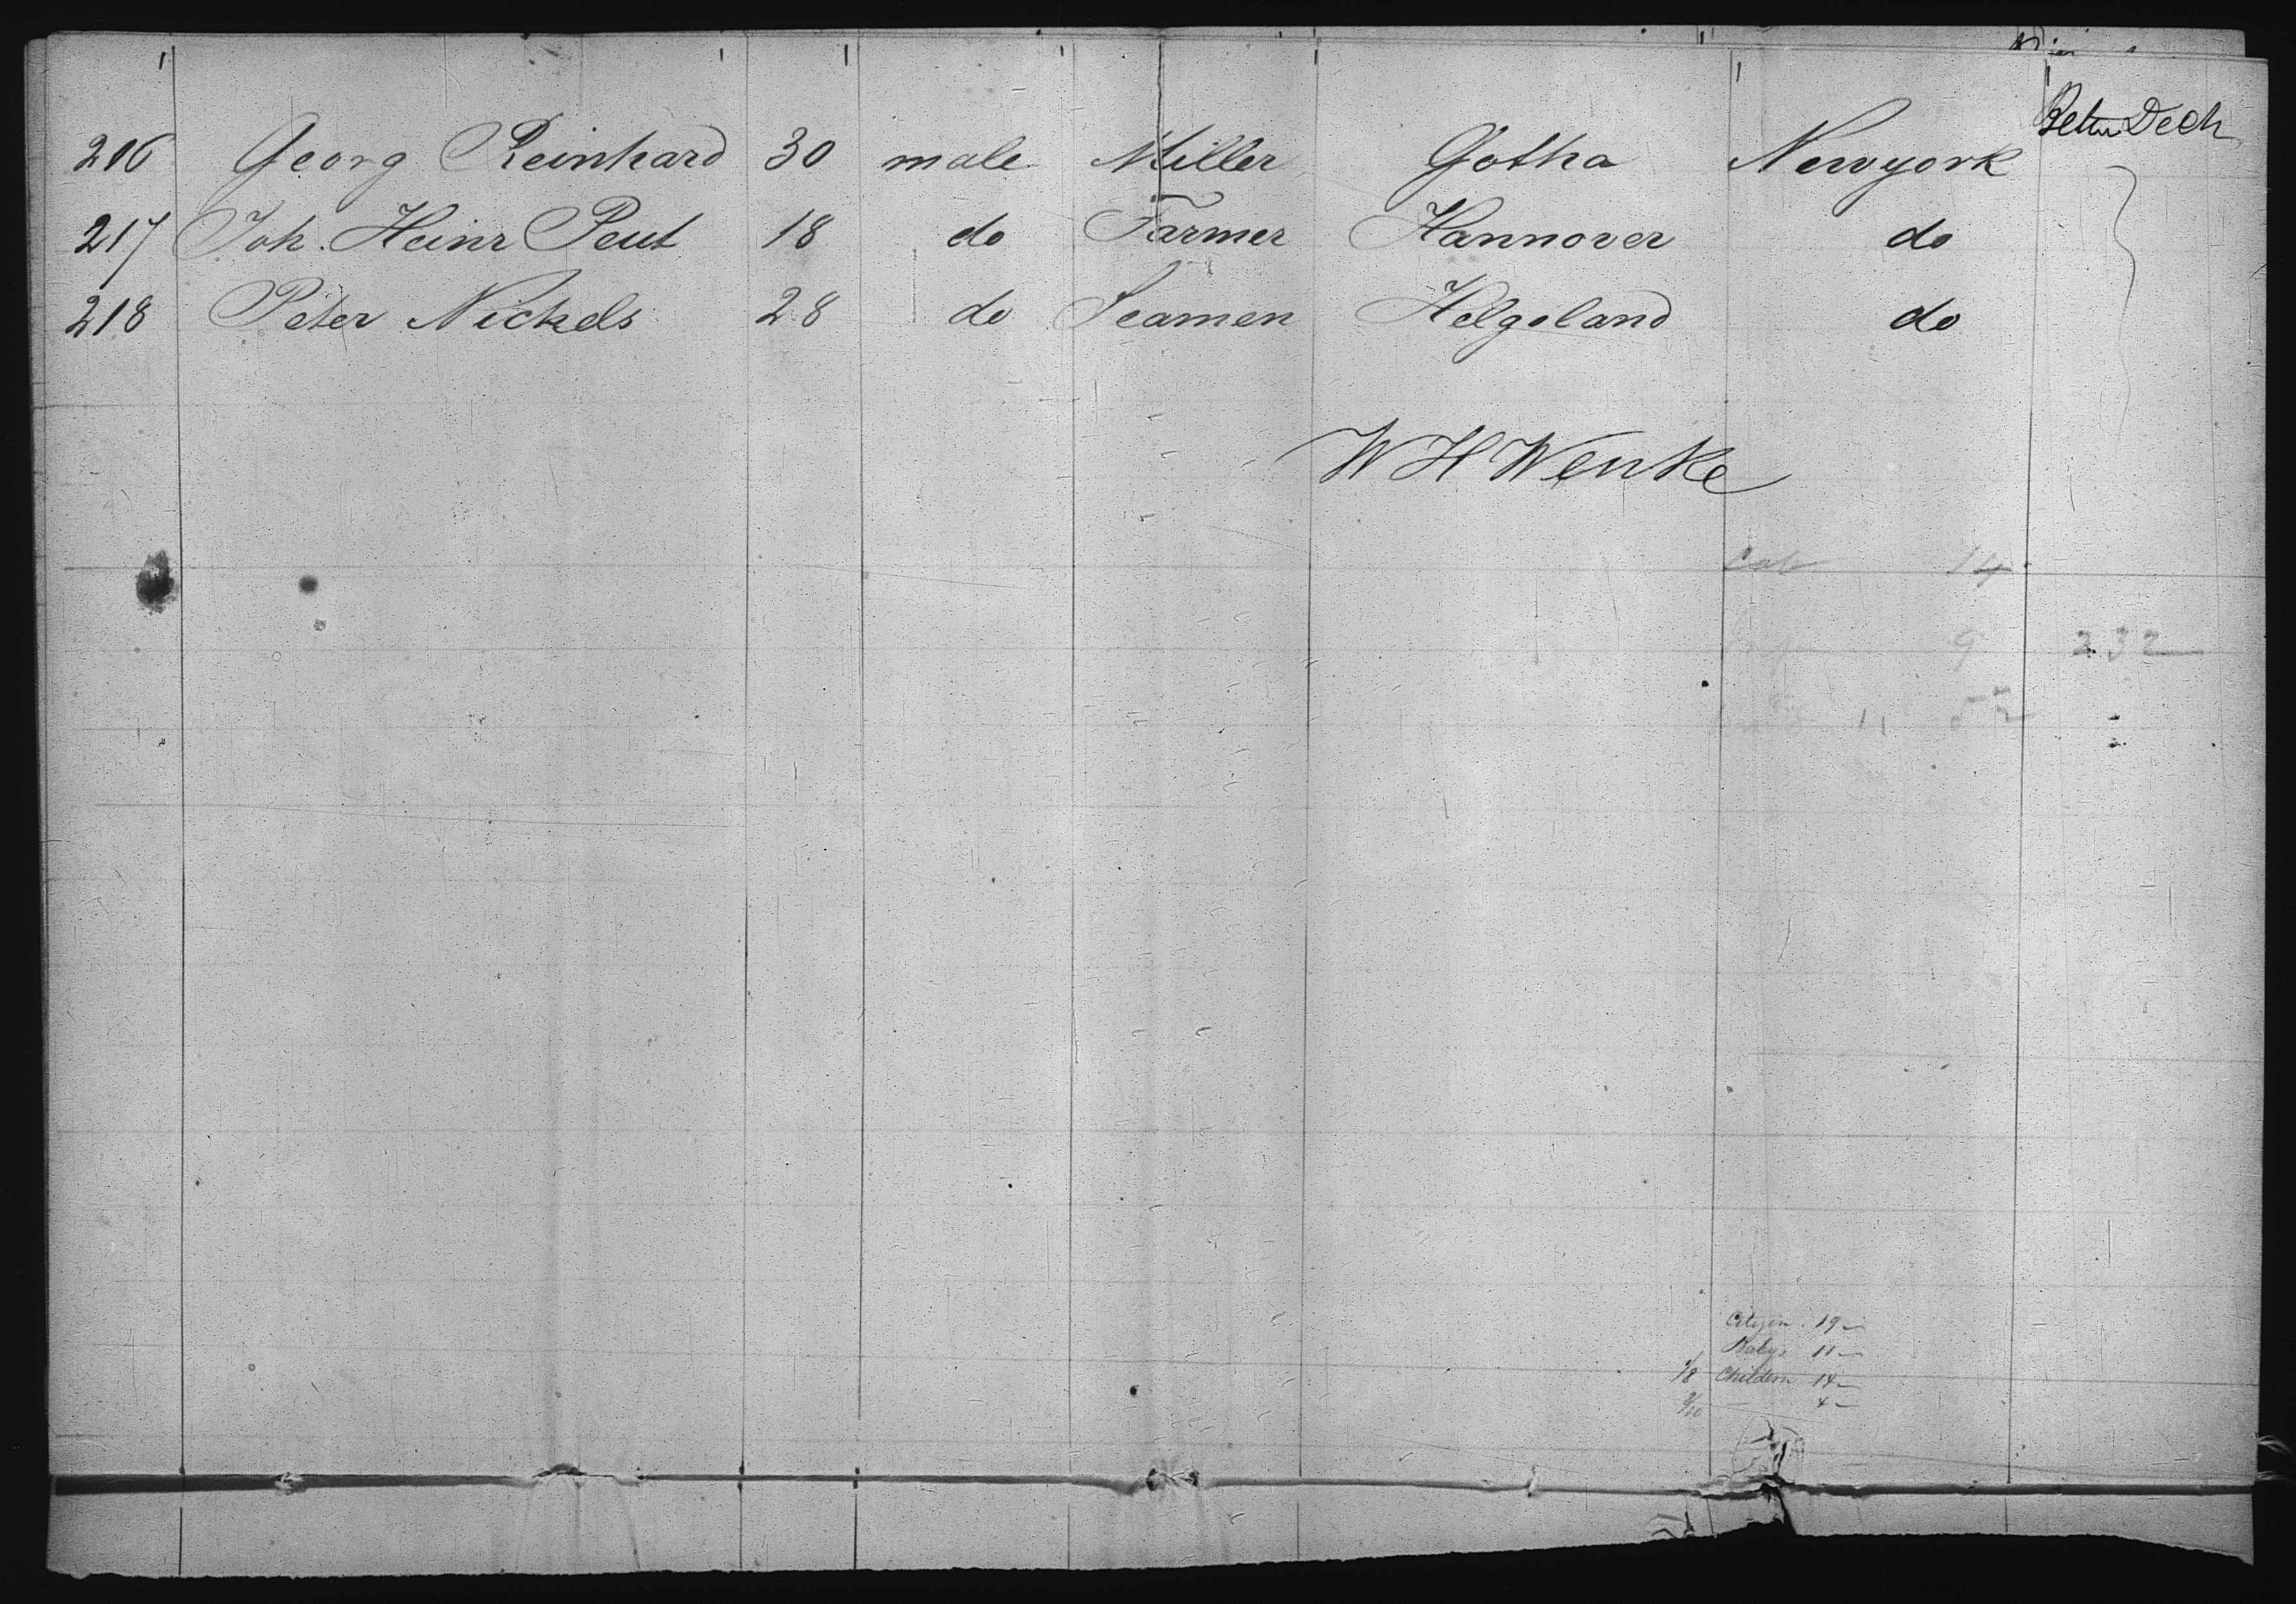 216 Georg Reinhard 30 male Miller Gotha Newyork Betw Deck
217 Joh. Heinr Peut 18 do Farmer Hannover do
218 Peter Nickels 28 do Seamen Helgoland do
W H Wenke
Cab 14
9 232
11 52
Citizen 19
Babys 11
1/8 Childern 14
9/10 4